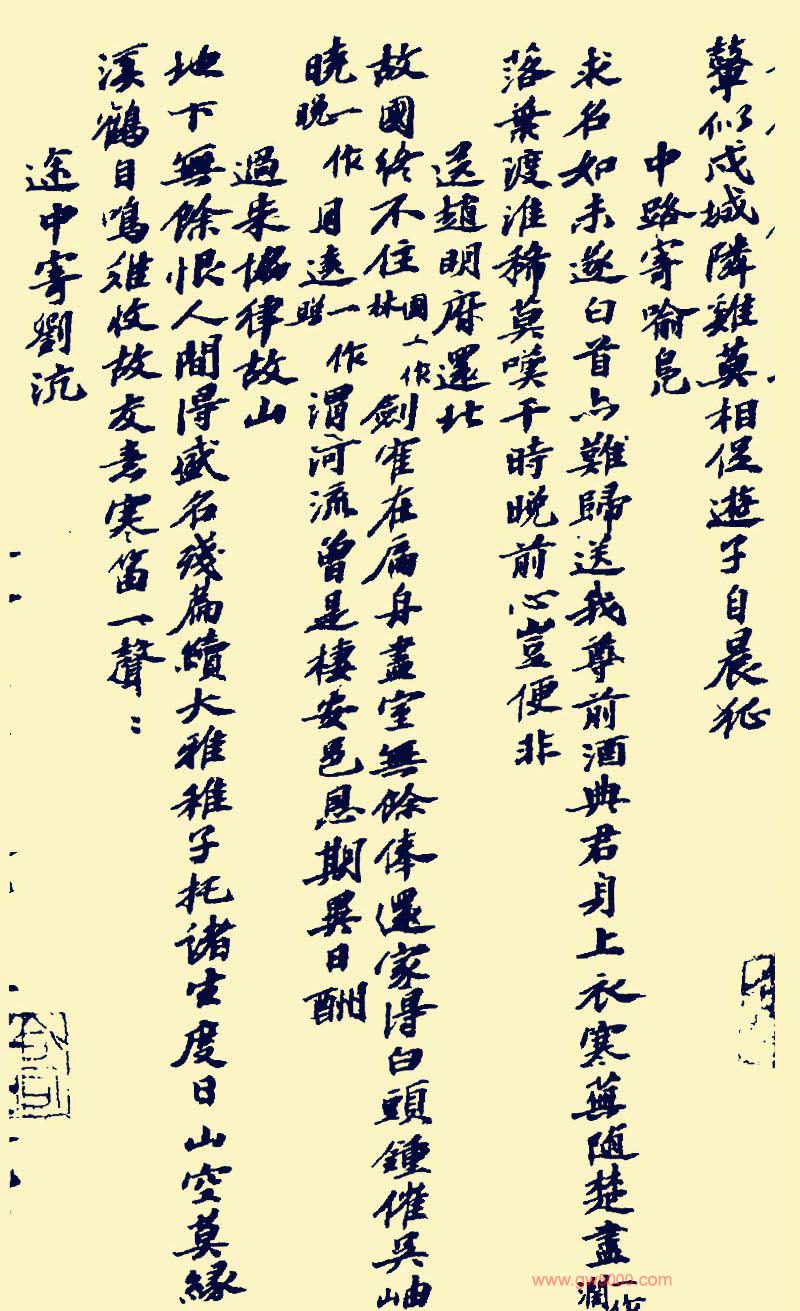 鼙似戍城隣雞莫相促遊子自晨征
中路寄喻凫
求名如未遂白首亦難歸送我尊前酒典君身上衣寒蕪随楚盡一作濶
落葉渡淮稀莫嘆干時晚前心豈便非
送趙明府還北
故國終不住國一作林劍霍在扁舟盡室無餘俸還家得白頭鍾催吳岫
曉一作晚月遶一作照渭河流曾是棲安邑恩期異日酬
過朱協律故山
地下無餘恨人間得盛名殘篇續大雅稚子托諸生度日山空莫緣
溪鶴自鳴難收故友意寒笛一聲：
途中寄劉沆
www.gw8000.com